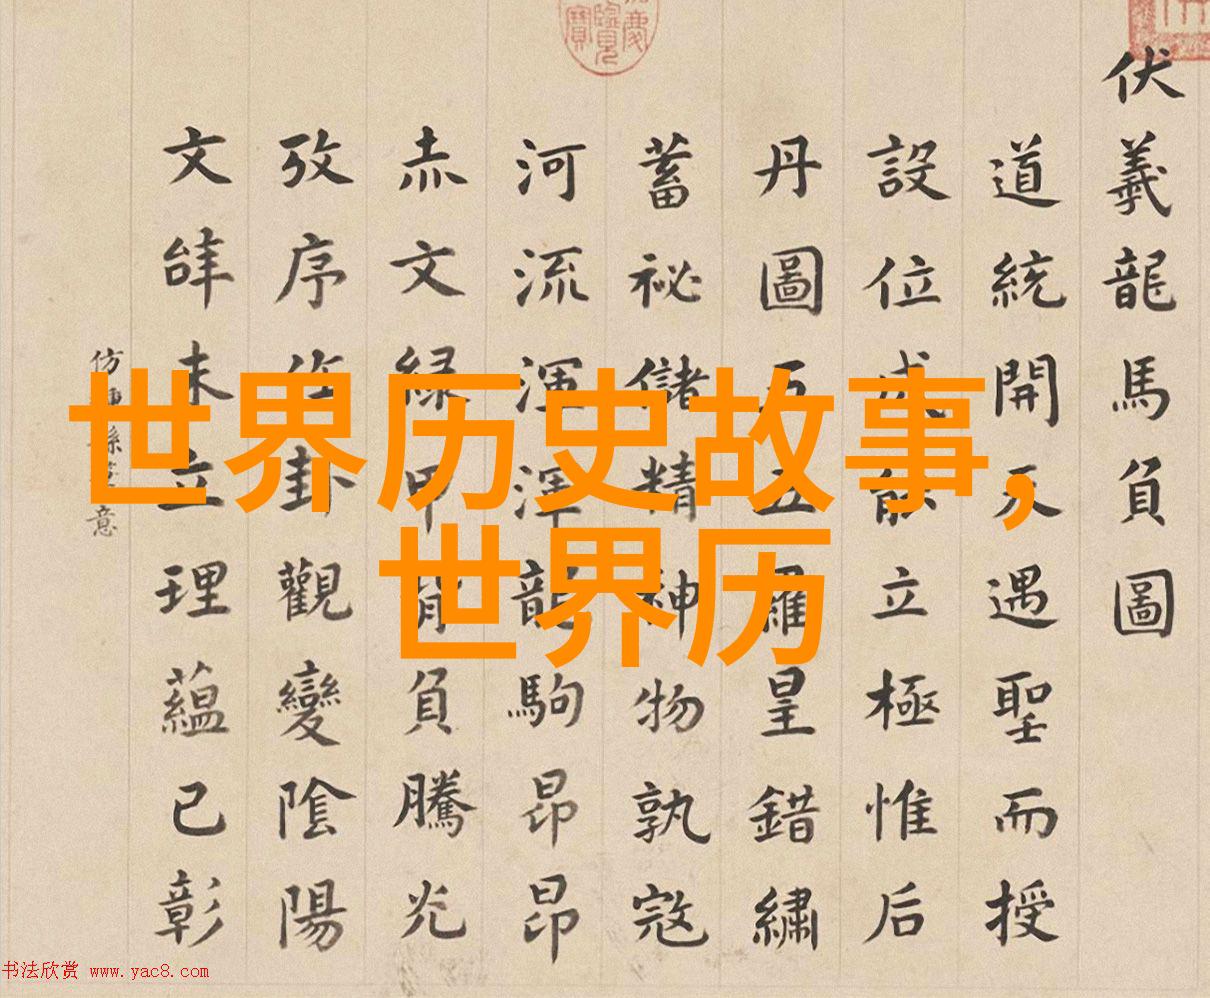 世界历史故事,
世界历
伏羲龍馬負圖
道統開天遇聖而授
設位成能立極惟后
丹圖五羅皇錯繡
蓄祕儲精神物孰寇
河流渾渾龍駒昂昂
赤文綠甲背負騰光
攷序作卦觀變陰陽
文辭未立理蘊已彰
仿意
嘉慶御覽之寶
书法欣赏 www.yac8.com